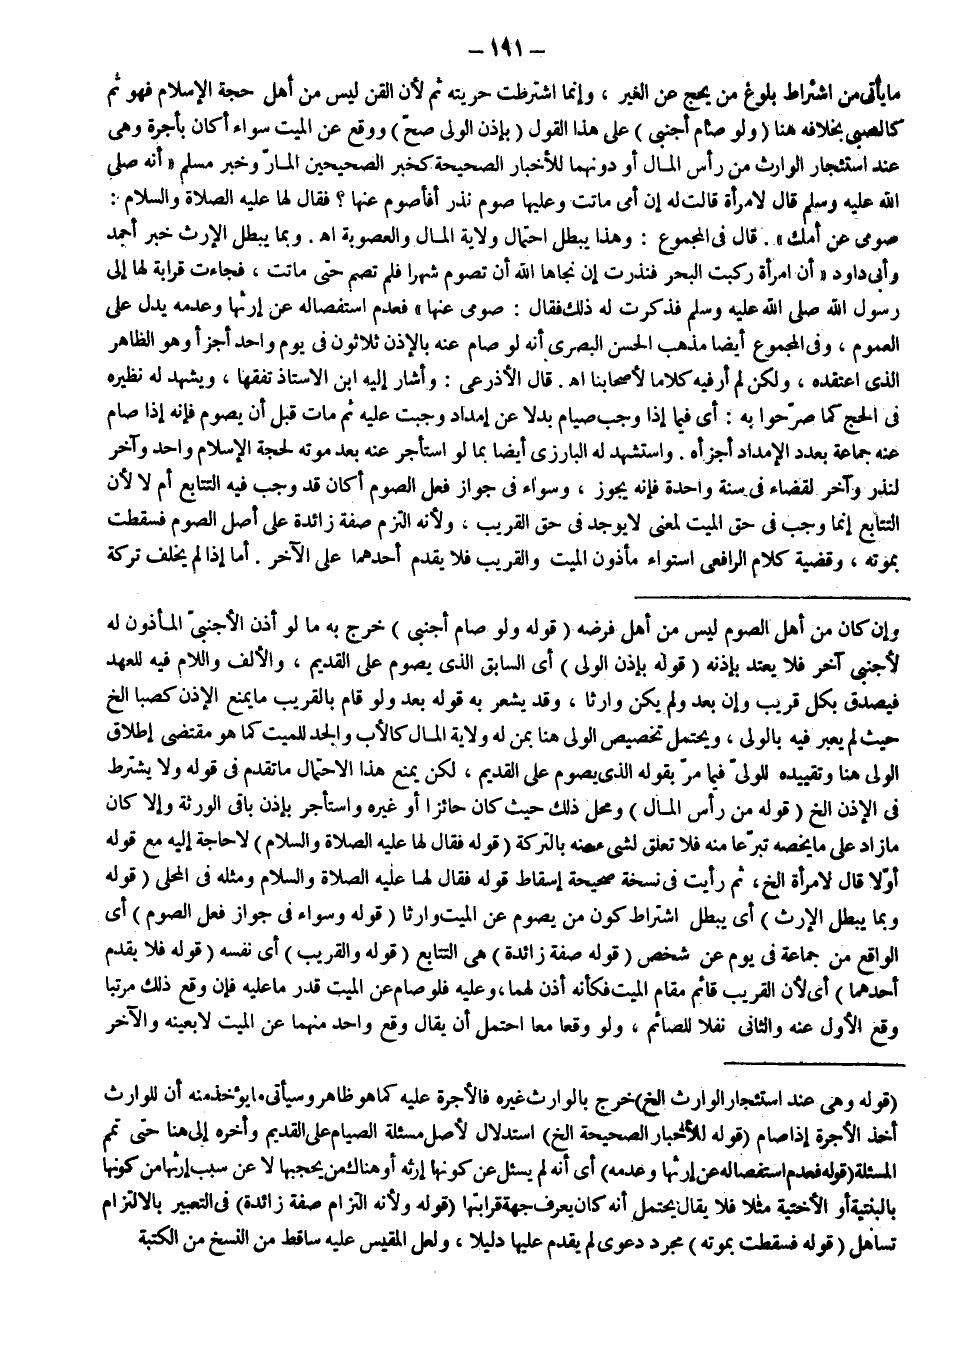 – ١٩١ –
مايأتى من اشتراط بلوغ من يحج عن الغير ، وإنما اشترطت حريته ثم لأن القن ليس من أهل حجة الإسلام فهو ثم
كالصبى بخلافه هنا ( ولو صام أجنبى ) على هذا القول ( بإذن الولى صحّ ) ووقع عن الميت سواء أكان بأجرة وهى
عند استئجار الوارث من رأس المـال أو دونهما للأخبار الصحيحة كخبر الصحيحين المـارّ وخبر مسلم « أنه صلى
الله عليه وسلم قال لامرأة قالت له إن أمى ماتت وعليها صوم نذر أفأصوم عنها ؟ فقال لها عليه الصلاة والسلام :
صومى عن أمك » . قال فى المجموع : وهذا يبطل احتمال ولاية المـال والعصوبة اهـ . وبما يبطل الإرث خبر أحمد
وأبى داود « أن امرأة ركبت البحر فنذرت إن نجاها الله أن تصوم شهرا فلم تصم حتى ماتت ، فجاءت قرابة لها إلى
رسول الله صلى الله عليه وسلم فذكرت له ذلك فقال : صومى عنها » فعدم استفصاله عن إرثها وعدمه يدل على
العموم ، وفى المجموع أيضا مذهب الحسن البصرى أنه لو صام عنه بالإذن ثلاثون فى يوم واحد أجزأ وهو الظاهر
الذى اعتقده ، ولكن لم أر فيه كلاما لأصحابنا اهـ . قال الأذرعى : وأشار إليه ابن الاستاذ تفقها ، ويشهد له نظيره
فى الحج كما صرّحوا به : أى فيما إذا وجب صيام بدلا عن إمداد وجبت عليه ثم مات قبل أن يصوم فإنه إذا صام
عنه جماعة بعدد الإمداد أجزأه . واستشهد له البارزى أيضا بما لو استأجر عنه بعد موته لحجة الإسلام واحد وآخر
لنذر وآخر لقضاء فى سنة واحدة فإنه يجوز ، وسواء فى جواز فعل الصوم أكان قد وجب فيه التتابع أم لا لأن
التتابع إنما وجب فى حق الميت لمعنى لايوجد فى حق القريب ، ولأنه التزم صفة زائدة على أصل الصوم فسقطت
بموته ، وقضية كلام الرافعى استواء مأذون الميت والقريب فلا يقدم أحدهما على الآخر . أما إذا لم يخلف تركة
وإن كان من أهل الصوم ليس من أهل فرضه ( قوله ولو صام أجنبى ) خرج به ما لو أذن الأجنبىّ المـأذون له
لأجنبى آخر فلا يعتد بإذنه ( قوله بإذن الولى ) أى السابق الذى يصوم على القديم ، والألف واللام فيه للعهد
فيصدق بكل قريب وإن بعد ولم يكن وارثا ، وقد يشعر به قوله بعد ولو قام بالقريب مايمنع الإذن كصبا الخ
حيث لم يعبر فيه بالولى ، ويحتمل تخصيص الولى هنا بمن له ولاية المـال كالأب والجد للميت كما هو مقتضى إطلاق
الولى هنا وتقييده للولىّ فيما مرّ بقوله الذى يصوم على القديم ، لكن يمنع هذا الاحتمال ماتقدم فى قوله ولا يشترط
فى الإذن الخ ( قوله من رأس المـال ) ومحل ذلك حيث كان حائزا أو غيره واستأجر بإذن باقى الورثة وإلا كان
مازاد على مايخصه تبرّعا منه فلا تعلق لشىء منه بالتركة ( قوله فقال لها عليه الصلاة والسلام ) لاحاجة إليه مع قوله
أوّلا قال لامرأة الخ ، ثم رأيت فى نسخة صحيحة إسقاط قوله فقال لهـا عليه الصلاة والسلام ومثله فى المحلى ( قوله
وبما يبطل الإرث ) أى يبطل اشتراط كون من يصوم عن الميت وارثا ( قوله وسواء فى جواز فعل الصوم ) أى
الواقع من جماعة فى يوم عن شخص ( قوله صفة زائدة ) هى التتابع ( قوله والقريب ) أى نفسه ( قوله فلا يقدم
أحدهما ) أى لأن القريب قائم مقام الميت فكأنه أذن لهما ، وعليه فلو صام عن الميت قدر ماعليه فإن وقع ذلك مرتبا
وقع الأول عنه والثانى نفلا للصائم ، ولو وقعا معا احتمل أن يقال وقع واحد منهما عن الميت لابعينه والآخر
(قوله وهى عند استئجار الوارث الخ) خرج بالوارث غيره فالأجرة عليه كما هو ظاهر وسيأتى مايؤخذ منه أن للوارث
أخذ الأجرة إذا صام (قوله للأخبار الصحيحة الخ) استدلال لأصل مسئلة الصيام على القديم وأخره إلى هنا حتى تتم
المسئلة (قوله فعدم استفصاله عن إرثها وعدمه) أى أنه لم يسئل عن كونها إرثه أو هناك من يحجبها لا عن سبب إرثها من كونها
بالبنتية أو الأختية مثلا فلا يقال يحتمل أنه كان يعرف جهة قرابتها (قوله ولأنه التزام صفة زائدة) فى التعبير بالالتزام
تساهل ( قوله فسقطت بموته ) مجرد دعوى لم يقدم عليها دليلا ، ولعل المقيس عليه ساقط من النسخ من الكتبة